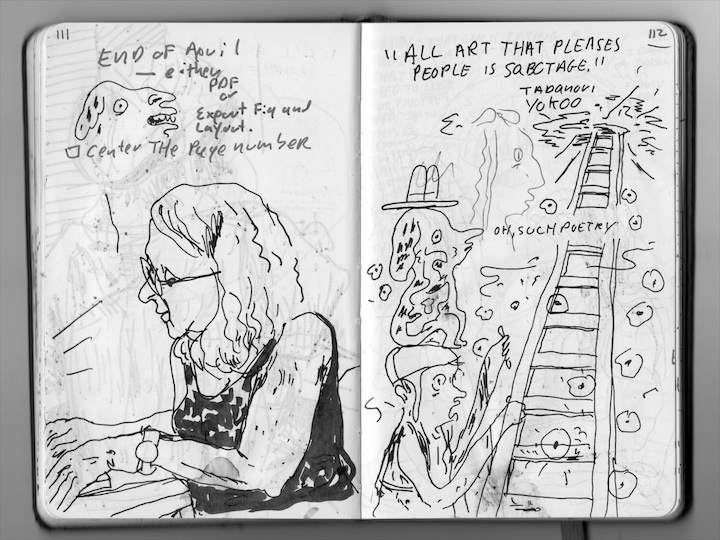 111
END OF April
— either
PDF
or
Export Fig and
Layout.
Center THE Page number
112
"ALL ART THAT PLEASES
PEOPLE IS SABOTAGE."
TADANORI
YOKOO
OH, SUCH POETRY